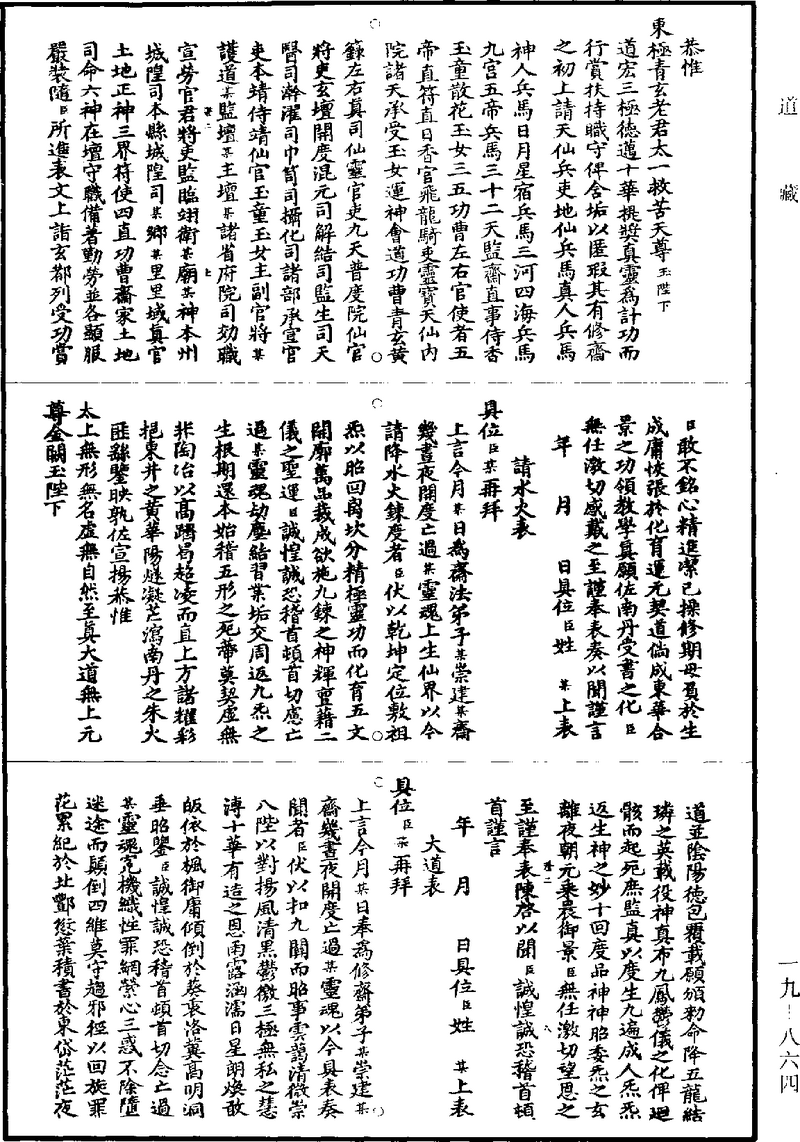 恭惟
東極青玄老君太一救苦天尊玉陛下
道宏三極德邁十華提獎真靈為計功而
行賞扶持職守俾舍垢以匿瑕其有修齋
之初上請天仙兵吏地仙兵馬真人兵馬
神人兵馬日月星宿兵馬三河四海兵馬
九宮五帝兵馬三十二天監齋直事侍香
玉童散花玉女三五功曹左右官使者五
帝直符直日香官飛龍騎吏靈寶天仙內
院諸天承受玉女運神會道功曹青玄黃
籙左右真司仙靈官吏九天普度院仙官
將吏玄壇開度混元司解結司監生司天
醫司澣濯司巾笥司攝化司諸部承宣官
吏本靖侍靖仙官玉童玉女主副官將某
護道某監壇某主壇某諸省府院司効職
宣勞官君將吏監臨翊衛某廟某神本州
城隍司本縣城隍司某鄉某里里域真官
土地正神三界符使四直功曹齋家土地
司命六神在壇守職備著勤勞並各顯服
嚴裝隨臣所進表文上詣玄都列受功賞
臣敢不銘心精進潔己操修期毋負於生
成庸恢張於化育運元契道倘成東華合
景之功領教學真願佐南丹受書之化臣
無任激切感戴之至謹奉表奏以聞謹言
年 月 日具位臣姓 某上表
請水火表
具位臣某再拜
上言今月某日為齋法弟子某崇建某齋
幾晝夜開度亡過某靈魂上生仙界以今
請降水火鍊度者臣伏以乾坤定位敷祖
炁以昭回离坎分精極靈功而化育五文
開廓萬品裁成欲施九鍊之神輝亶藉二
儀之聖運臣誠惶誠恐稽首頓首切慮亡
過某靈魂劫塵結習業垢交周返九炁之
生根期還本始稽五形之死蔕莫契虛無
非陶冶以高躋曷超凌而直上方諸耀彩
挹東井之黃華陽燧凝芒瀉南丹之朱火
匪繇鑒映孰佐宣揚恭惟
太上無形無名虛無自然至真大道無上元
尊金闕玉陛下
道並陰陽德包覆載願頒勑命降五龍結
璘之英載役神真布九鳳欝儀之化俾廻
骸而起死庶監真以度生九遍成人炁炁
返生神之妙十回度品神神昭委炁之玄
離夜朝元乘晨御景臣無任激切望恩之
至謹奉表陳啓以聞臣誠惶誠恐稽首頓
首謹言
年 月 日具位臣姓 某上表
大道表
具位臣某再拜
上言今月某日奉為修齋弟子某崇建某
齋幾晝夜開度亡過某靈魂以今具表奏
聞者臣伏以扣九關而昭事雲藹清微崇
八陛以對揚風清黑欝微三極無私之慧
溥十華有造之恩雨露涵濡日星朗煥敢
皈依於楓御庸傾倒於葵衷洛冀高明洞
垂昭鑒臣誠惶誠恐稽首頓首切念亡過
某靈魂寃機織性罪網縈心三惑不除墮
迷途而顚倒四維莫守趨邪徑以回旋罪
花累紀於北酆愆葉積書於東岱茫茫夜
道藏
一九-八六四